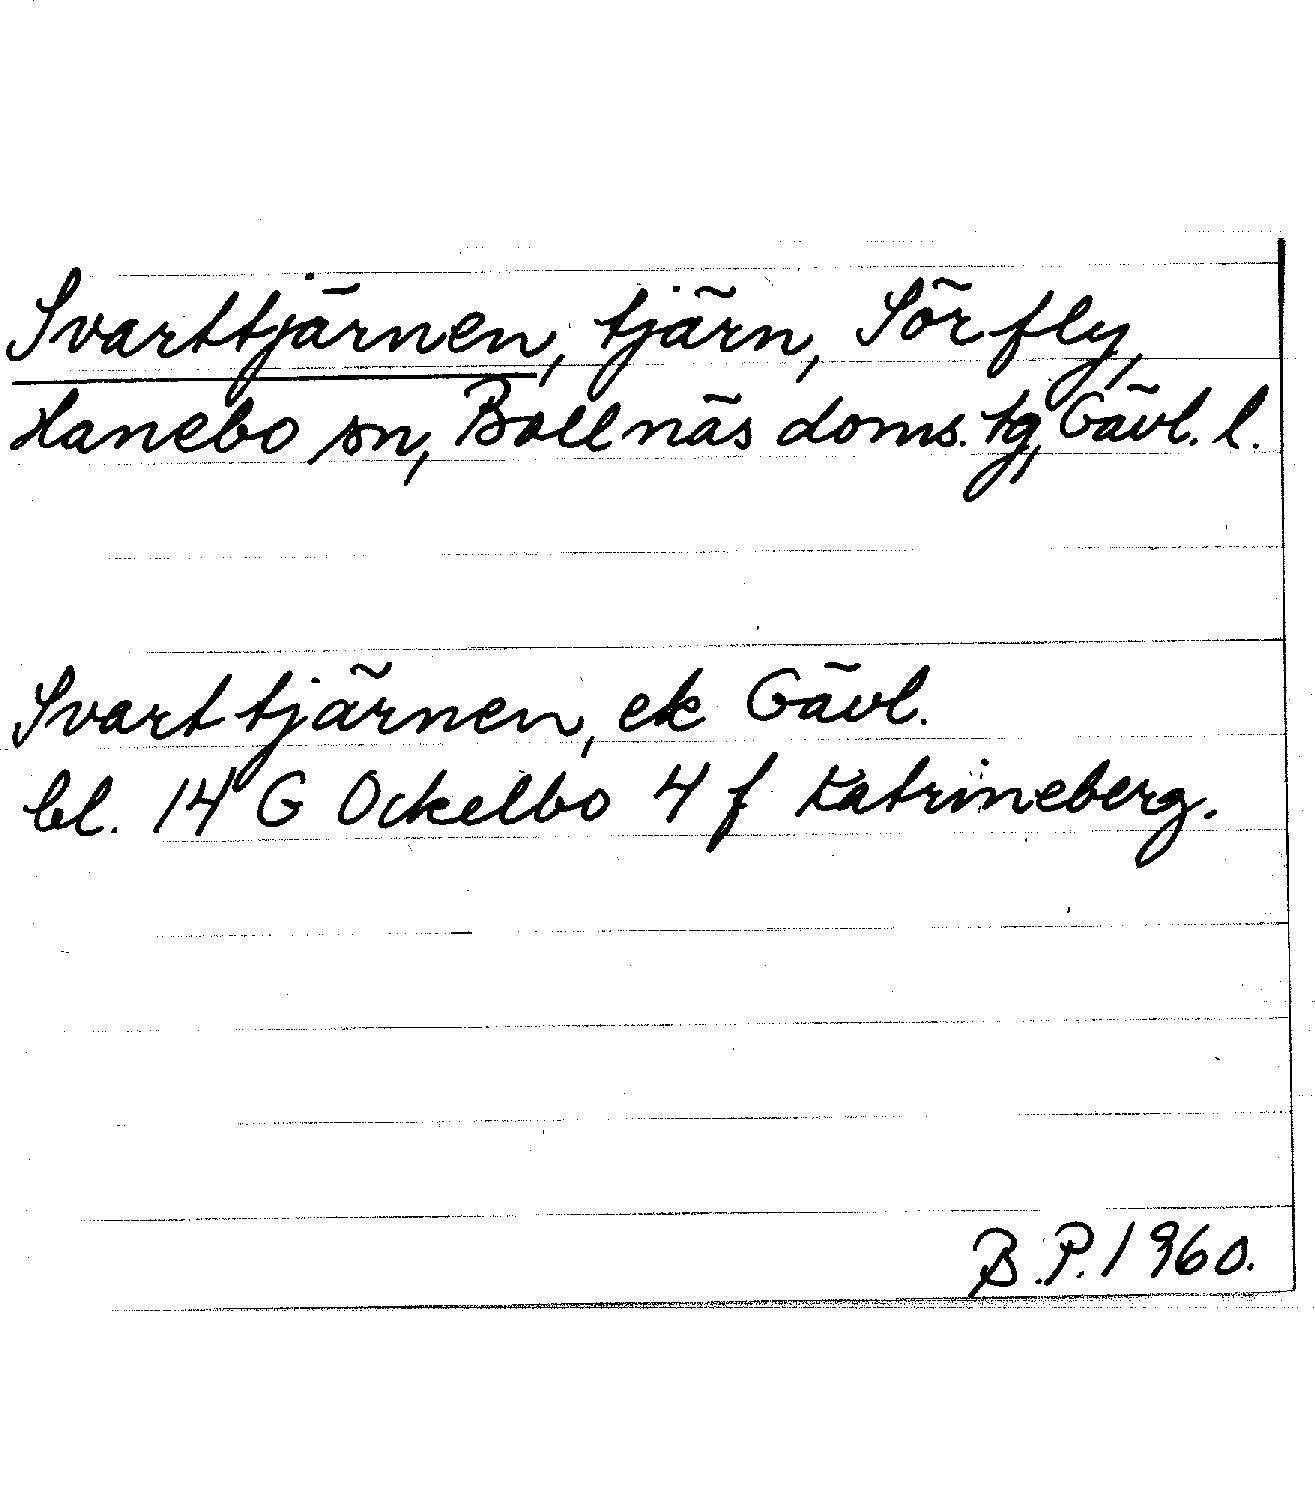 Svarttjärnen, tjärn, Sörfly,
Hanebo sn, Bollnäs doms. tg, Gävl. l.
Svarttjärnen, ek Gävl.
bl. 14 G Ockelbo 4 f Katrineberg.
B.P. 1960.